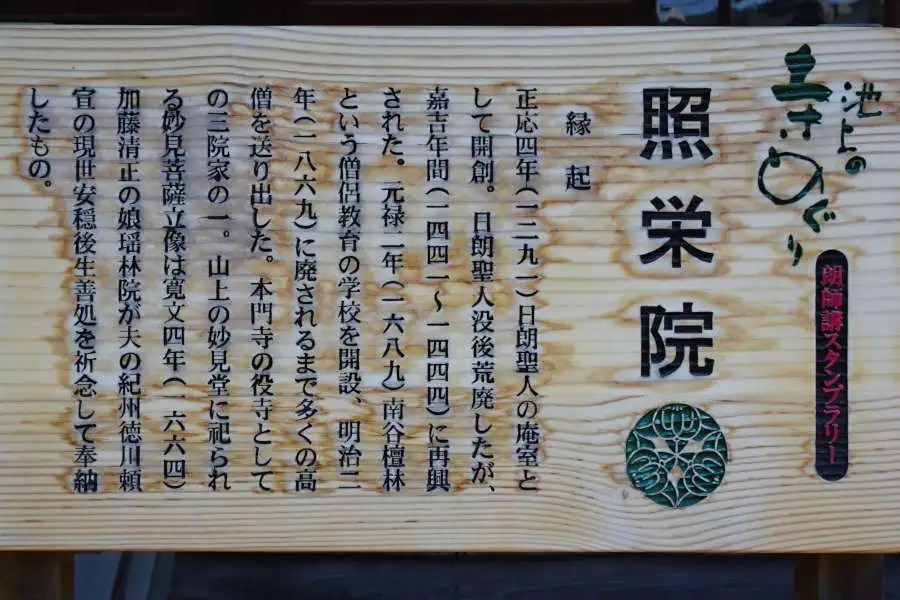 池上の
まちめぐり
朗師講スタンプラリー
照栄院
縁起
正応四年(一二九一)日朗聖人の庵室と
して開創。日朗聖人没後荒廃したが、
嘉吉年間(一四四一~一四四四)に再興
された。元禄二年(一六八九)南谷檀林
という僧侶教育の学校を開設、明治二
年(一八六九)に廃されるまで多くの高
僧を送り出した。本門寺の役寺として
の三院家の一。山上の妙見堂に祀られ
る妙見菩薩立像は寛文四年(一六六四)
加藤清正の娘瑶林院が夫の紀州徳川頼
宣の現世安穏後生善処を祈念して奉納
したもの。